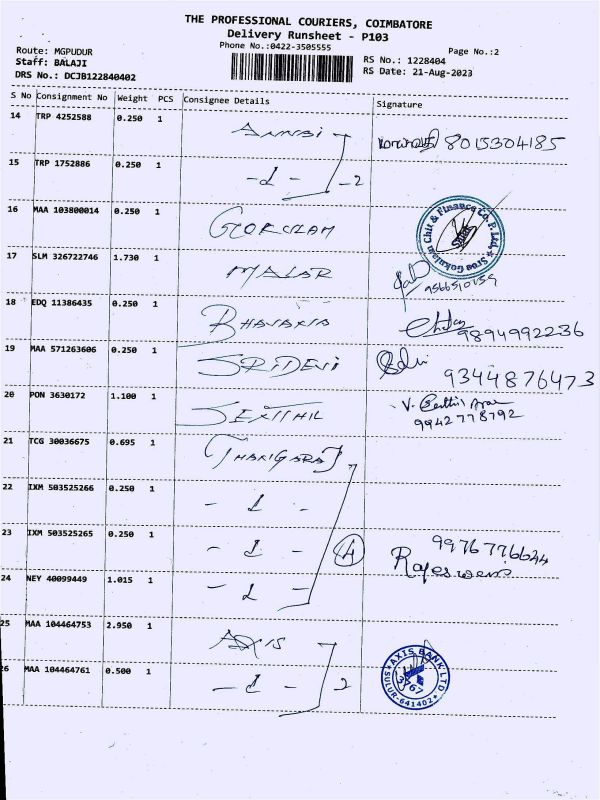 THE PROFESSIONAL COURIERS, COIMBATORE
Delivery Runsheet - P103
Phone No.:0422-3505555
Page No.:2
Route: MGPUDUR
Staff: BALAJI
DRS No.: DCJB122840402
RS No.: 1228404
RS Date: 21-Aug-2023
S No Consignment No Weight PCS Consignee Details Signature
14 TRP 4252588 0.250 1 8015304185
15 TRP 1752886 0.250 1 -1- -2
16 MAA 103800014 0.250 1 GOKULAM Sree Gokulam Chit & Finance Co. P. Ltd.
17 SLM 326722746 1.730 1 MALAR
18 EDQ 11386435 0.250 1 9894992236
19 MAA 571263606 0.250 1 SRIDEVI 9344876473
20 PON 3630172 1.100 1 SENTHIL V.
9942778792
21 TCG 30036675 0.695 1
22 IXM 503525266 0.250 1 - 1 -
23 IXM 503525265 0.250 1 - 1 - 4 9976776644
24 NEY 40099449 1.015 1 - 1 -
25 MAA 104464753 2.950 1 AXIS AXIS BANK LTD
26 MAA 104464761 0.500 1 - 1 - 2 SULUR-641402